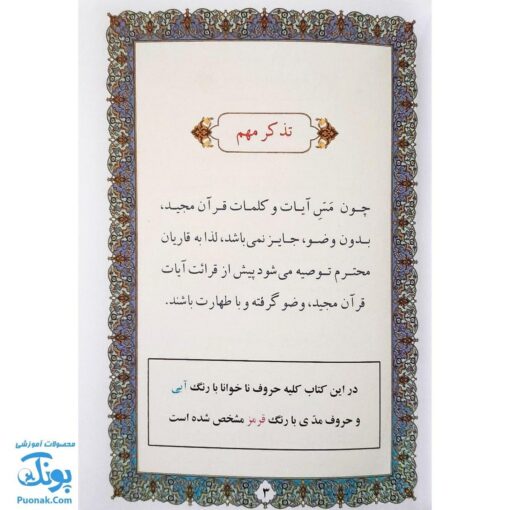 تذکر مهم
چون مَسّ آیات و کلمات قرآن مجید،
بدون وضو، جایز نمی‌باشد، لذا به قاریان
محترم توصیه می‌شود پیش از قرائت آیات
قرآن مجید، وضو گرفته و با طهارت باشند.
در این کتاب کلیه حروف نا خوانا با رنگ آبی
و حروف مدّی با رنگ قرمز مشخص شده است
۳
محصولات آموزشی
پونک
Puonak.Com